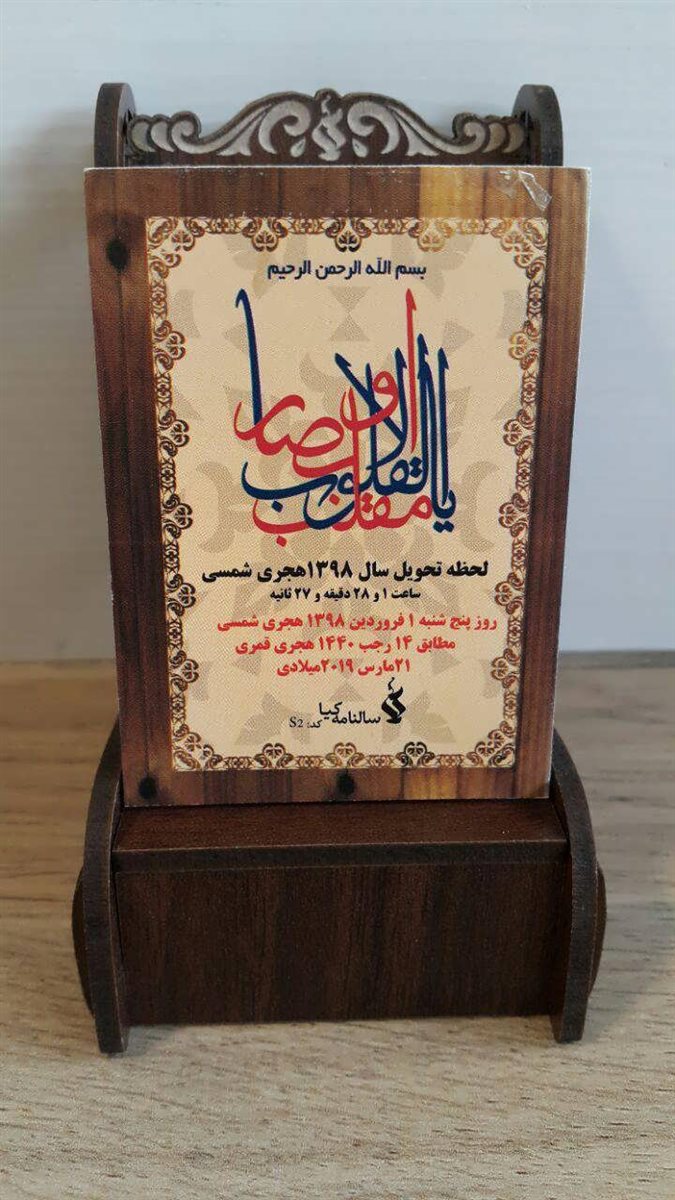 بسم الله الرحمن الرحیم
یا مقلب القلوب و الابصار
لحظه تحویل سال ۱۳۹۸ هجری شمسی
ساعت ۱ و ۲۸ دقیقه و ۲۷ ثانیه
روز پنج شنبه ۱ فروردین ۱۳۹۸ هجری شمسی
مطابق ۱۴ رجب ۱۴۴۰ هجری قمری
۲۱ مارس ۲۰۱۹ میلادی
سالنامه کیا
کد: S2